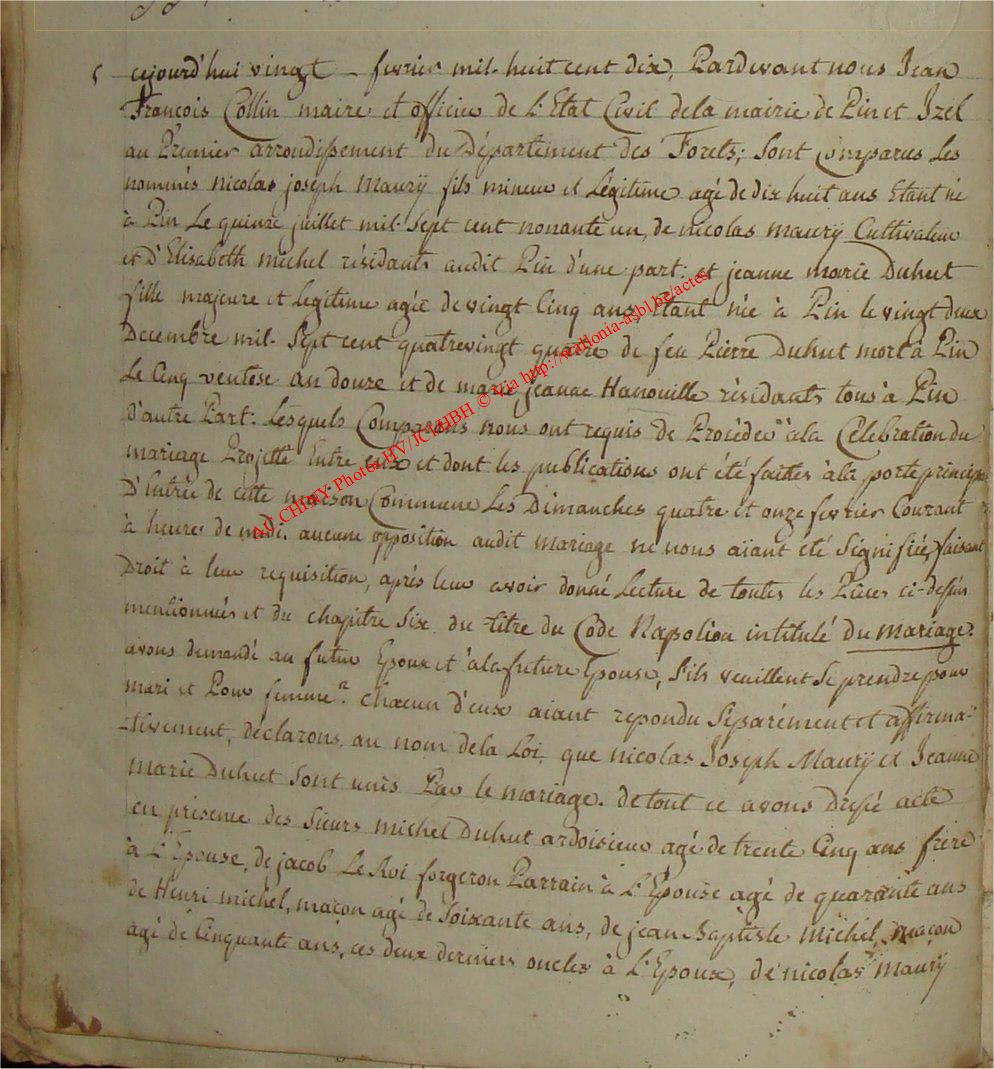 5 cejourd'hui vingt - fevrier mil-huit cent dix, Pardevant nous Jean
François Collin maire et officier de L'Etat Civil dela mairie de Pin et Izel
au Premier arrondissement du Département des Forets; sont comparus Les
nommés nicolas joseph Maurÿ fils mineur et Légitime agé de dix huit ans Etant né
à Pin Le quinze juillet mil-sept cent nonante un, de nicolas maurÿ Cultivateur
et D'Elisabeth michel résidants audit Pin d'une part: et jeanne marie Duhut
fille majeure et Legitime agée de vingt Cinq ans Etant née à Pin le vingt deux
Decembre mil-sept cent quatrevingt quatre de feu Pierre Duhut mort à Pin
Le Cinq ventose an douze et de marie jeanne Hanouille résidants tous à Pin
D'autre Part: Lesquels Comparans nous ont requis de Procéder à la Célebration du
mariage Projetté Entre eux et dont les publications ont été faites à la porte principale
D'Entrée de cette maison Commune Les Dimanches quatre et onze fevrier Courant
à heure de midi. aucune opposition audit mariage ne nous aïant été Signifiée, faisant
Droit à leur requisition, après leur avoir donné Lecture de toutes les Pièces ci-dessus
mentionnées et du chapitre Six du titre du Code Napoléon intitulé Du Mariage.
avons demandé au futur Epoux et à la future Epouse, s'ils veuillent se prendre pour
mari et Pour femme? chacun d'eux aiant repondu séparément et affirma-
-tivement, déclarons, au nom dela Loi, que nicolas Joseph Maurÿ et Jeanne
Marie Duhut Sont unis Par le mariage. de tout ce avons Dressé acte
en présence des Sieurs michel Duhut ardoisieur agé de trente Cinq ans frère
à L'Epouse, de jacob Le Roi forgeron Parrain à L'Epouse agé de quarante ans
de Henri michel, maçon agé de Soixante ans, de jean Baptiste Michel, maçon
agé de Cinquante ans, ces deux derniers oncles à L'Epoux, de nicolas Maurÿ
AC CHINY Photos HV/JCM/IBH © via http://wallonia-asbl.be/actes